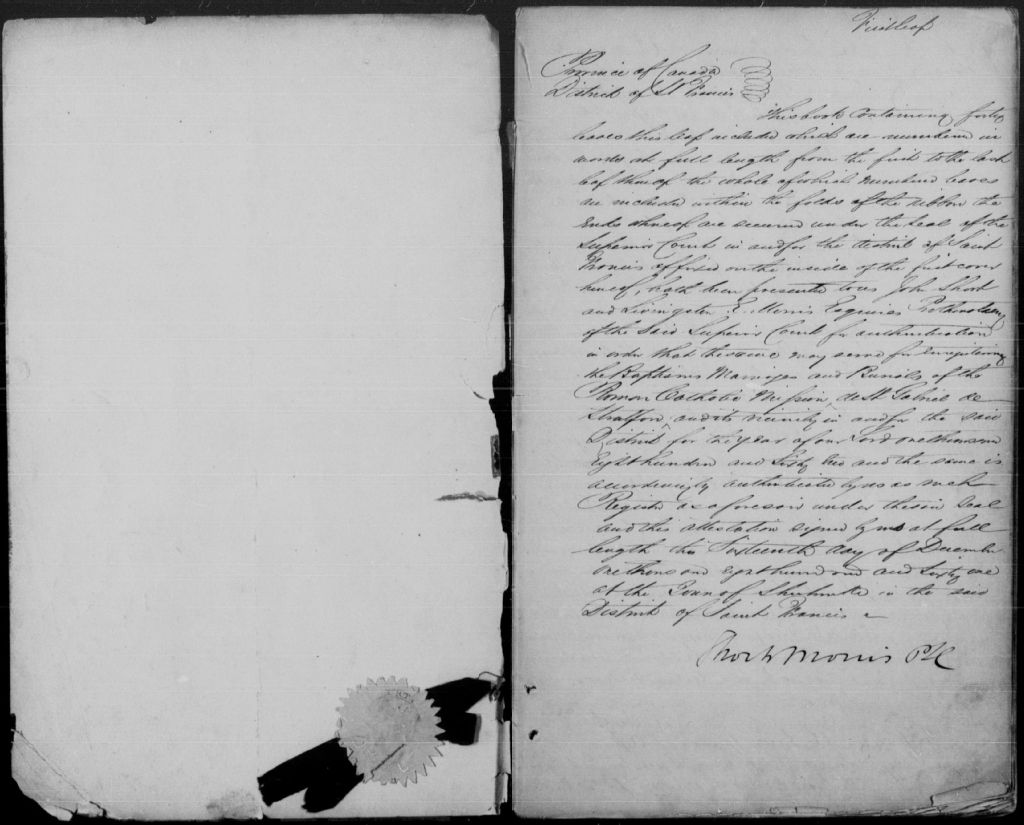 First leaf
Province of Canada
District of St Francis
This book containing forty
leaves this leaf included which are numbered in
words at full length from the first to the last
leaf thereof the whole of which numbered leaves
are included within the folds of the ribbon the
ends whereof are secured under the Seal of the
Superior Court in and for the district of Saint
Francis affixed on the inside of the first cover
hereof, hath been presented to us John Short
and Livingston E. Morris Esquires Prothonotary
of the Said Superior Court for authentication
in order that the same may serve for enregistering
the Baptisms Marriages and Burials of the
Roman Catholic Mission de St Gabriel de
Stratford and its vicinity in and for the said
District for the year of our Lord one thousand
Eight hundred and Sixty two and the same is
accordingly authenticated by us as such
Register as aforesaid under the said Seal
and this attestation signed by us at full
length this Sixteenth day of December
one thousand eight hundred and sixty one
at the Town of Sherbrooke in the said
District of Saint Francis
Short & Morris PSC